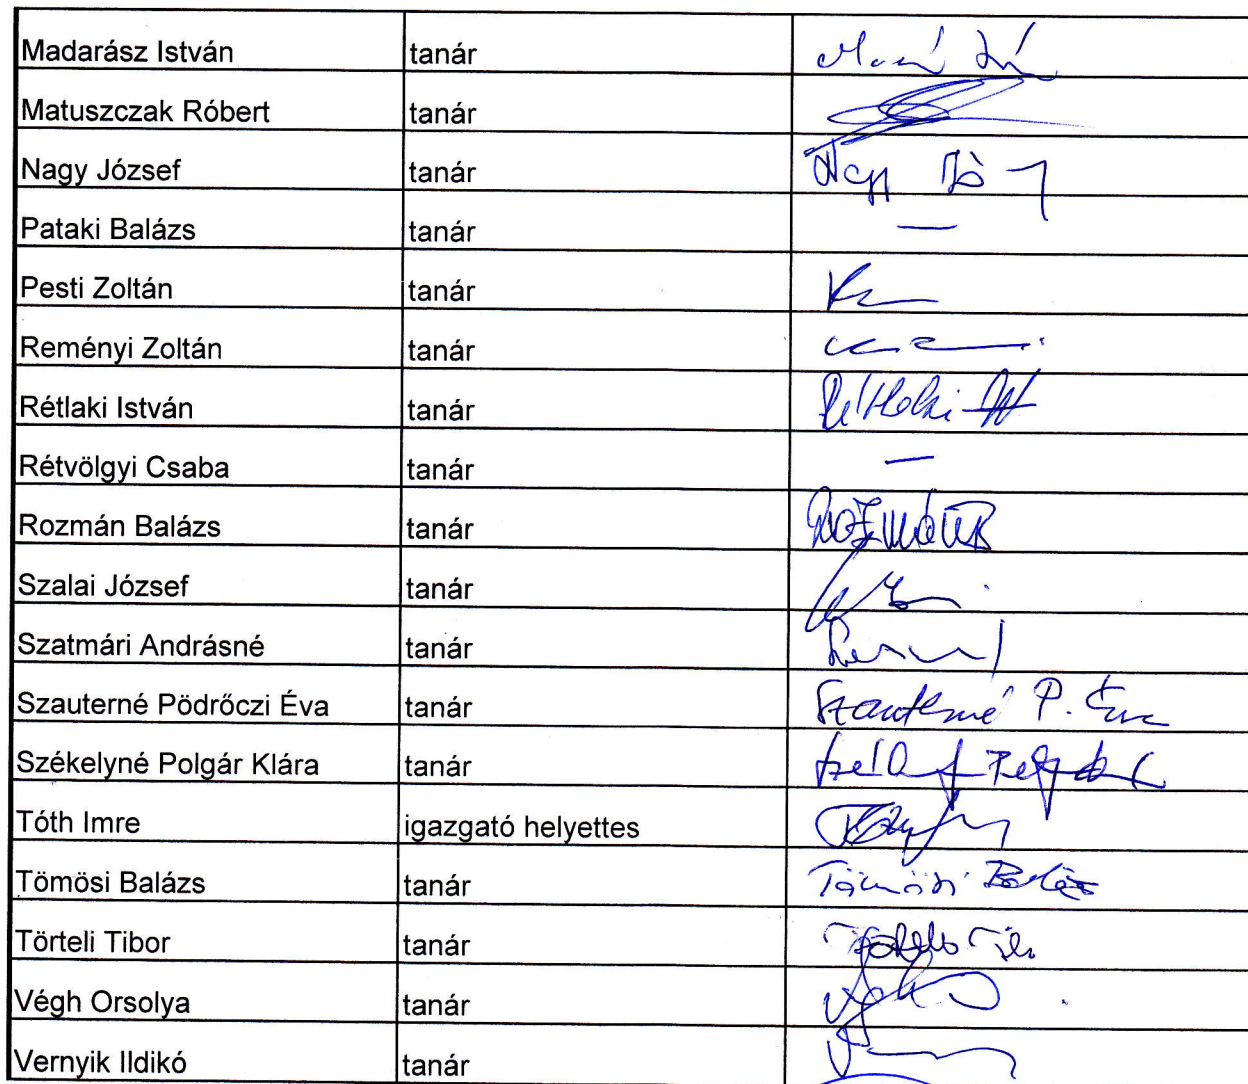 Madarász István tanár
Matuszczak Róbert tanár
Nagy József tanár Nagy Jó
Pataki Balázs tanár —
Pesti Zoltán tanár
Reményi Zoltán tanár
Rétlaki István tanár Rétlaki
Rétvölgyi Csaba tanár —
Rozmán Balázs tanár Rozmán B
Szalai József tanár
Szatmári Andrásné tanár
Szauterné Pödrőczi Éva tanár Szauterné P. Éva
Székelyné Polgár Klára tanár
Tóth Imre igazgató helyettes
Tömösi Balázs tanár Tömösi Balázs
Törteli Tibor tanár
Végh Orsolya tanár
Vernyik Ildikó tanár